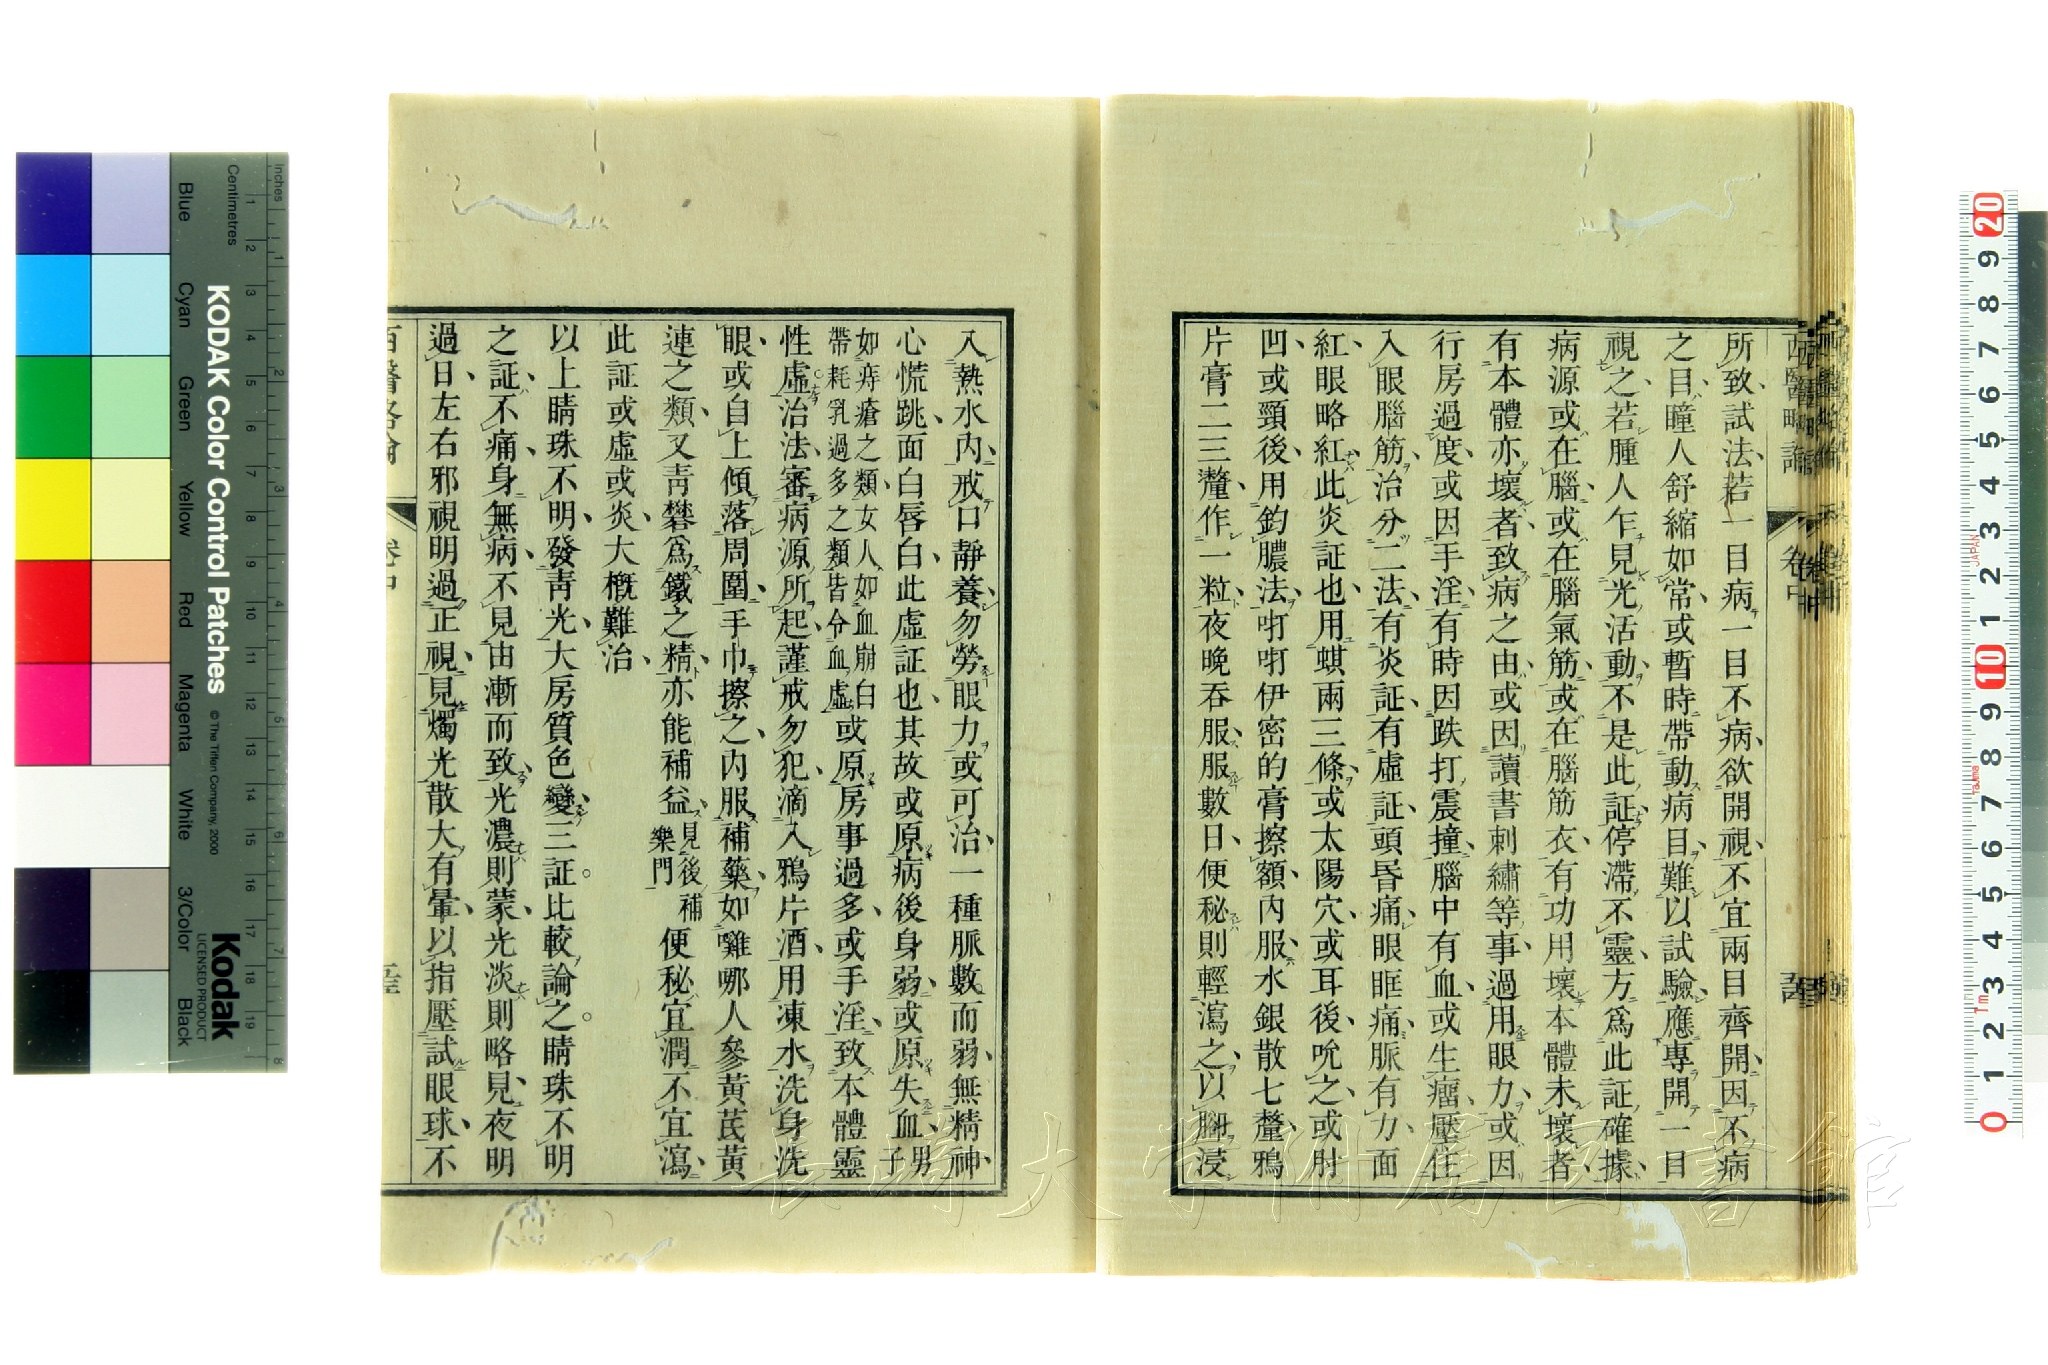 西醫略論
卷中
所致試法若一目病一目不病欲開視不宜兩目齊開因不病
之目瞳人舒縮如常或暫時帶動病目難以試驗應專開一目
視之若腫人乍見光活動不是此証停滯不靈方為此証確據
病源或在腦或在腦氣筋或在腦筋衣有功用壞本體未壞者
有本體亦壞者致病之由或因讀書刺繡等事過用眼力或因
行房過度或因手淫有時因跌打震撞腦中有血或生瘤壓住
入眼腦筋治分二法有炎証有虛証頭昏痛眼眶痛脈有力面
紅眼略紅此炎証也用蜞兩三條或太陽穴或耳後吮之或肘
凹或頸後用鈞膿法㕶㕶伊密的膏擦額內服水銀散七釐鴉
片膏二三釐作一粒夜晚吞服服數日便秘則輕瀉之以腳浸
入熱水內戒口靜養勿勞眼力或可治一種脈數而弱無精神
心慌跳面白唇白此虛証也其故或原病後身弱或原失血男子
如痔瘡之類女人如血崩白
帶耗乳過多之類皆令血虛或原房事過多或手淫致本體靈
性虛治法審病源所起謹戒勿犯滴入鴉片酒用凍水洗身洗
眼或自上傾落周圍手巾擦之內服補藥如雞哪人參黃芪黃
連之類又青礬為鐵之精亦能補益見後補藥門便秘宜潤不宜瀉
此証或虛或炎大概難治
以上睛珠不明發青光大房質色變三証比較論之睛珠不明
之証不痛身無病不見由漸而致光濃則蒙光淡則略見夜明
過日左右邪視明過正視見燭光散大有暈以指壓試眼球不
西醫略論
卷中
KODAK Color Control Patches
© The Tiffen Company, 2000
Kodak
LICENSED PRODUCT
Inches
Centimetres
Blue
Cyan
Green
Yellow
Red
Magenta
White
3/Color
Black
長崎大学附属図書館